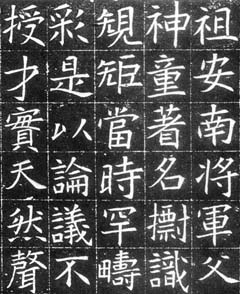 祖安南將軍父
神童著名識
䂓矩當時罕疇
彩是以論議不
授才實天聲